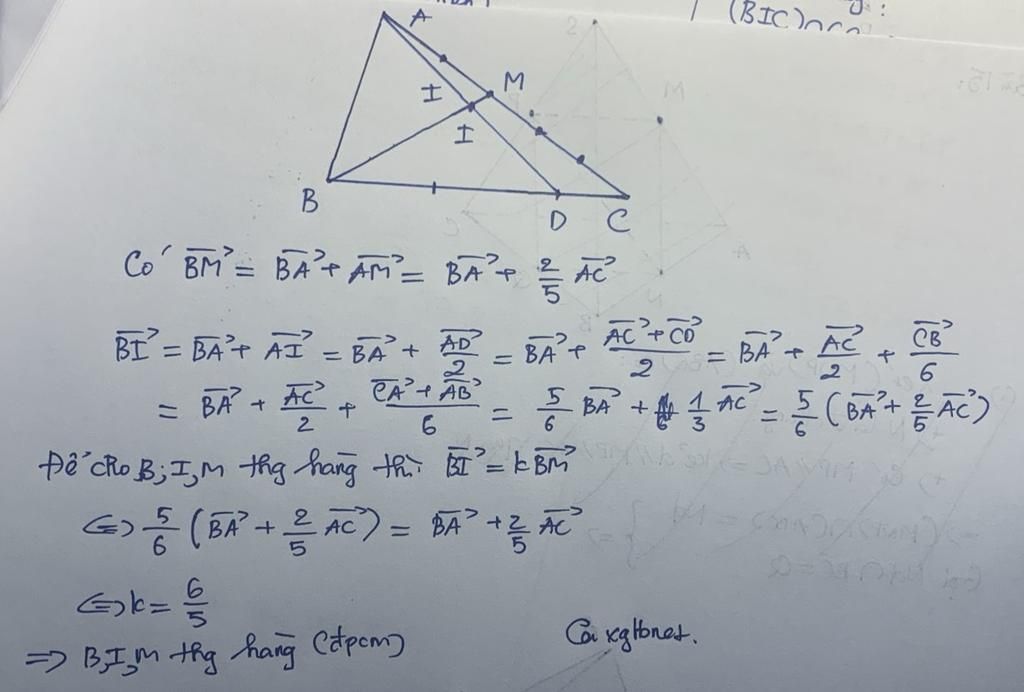 (BIC)∩
A
M
I
I
B
D
C
Có BM⃗ = BA⃗ + AM⃗ = BA⃗ + 2/5 AC⃗
BI⃗ = BA⃗ + AI⃗ = BA⃗ + AD⃗/2 = BA⃗ + (AC⃗ + CD⃗)/2 = BA⃗ + AC⃗/2 + CB⃗/6
= BA⃗ + AC⃗/2 + (CA⃗ + AB⃗)/6 = 5/6 BA⃗ + 1/3 AC⃗ = 5/6 (BA⃗ + 2/5 AC⃗)
Để cho B; I, M thg hàng thì BI⃗ = kBM⃗
⇔ 5/6 (BA⃗ + 2/5 AC⃗) = BA⃗ + 2/5 AC⃗
⇔ k = 6/5
⇒ B, I, M thg hàng (đpcm)